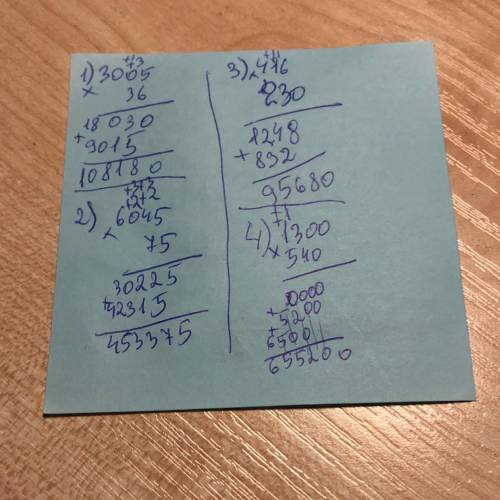 1) 3005
×
36
18030
+
9015
108180
2) 6045
×
75
30225
+
42315
453375
3) 416
×
230
1248
+
832
95680
4) 1300
×
540
0000
+
5200
+
6500
655200